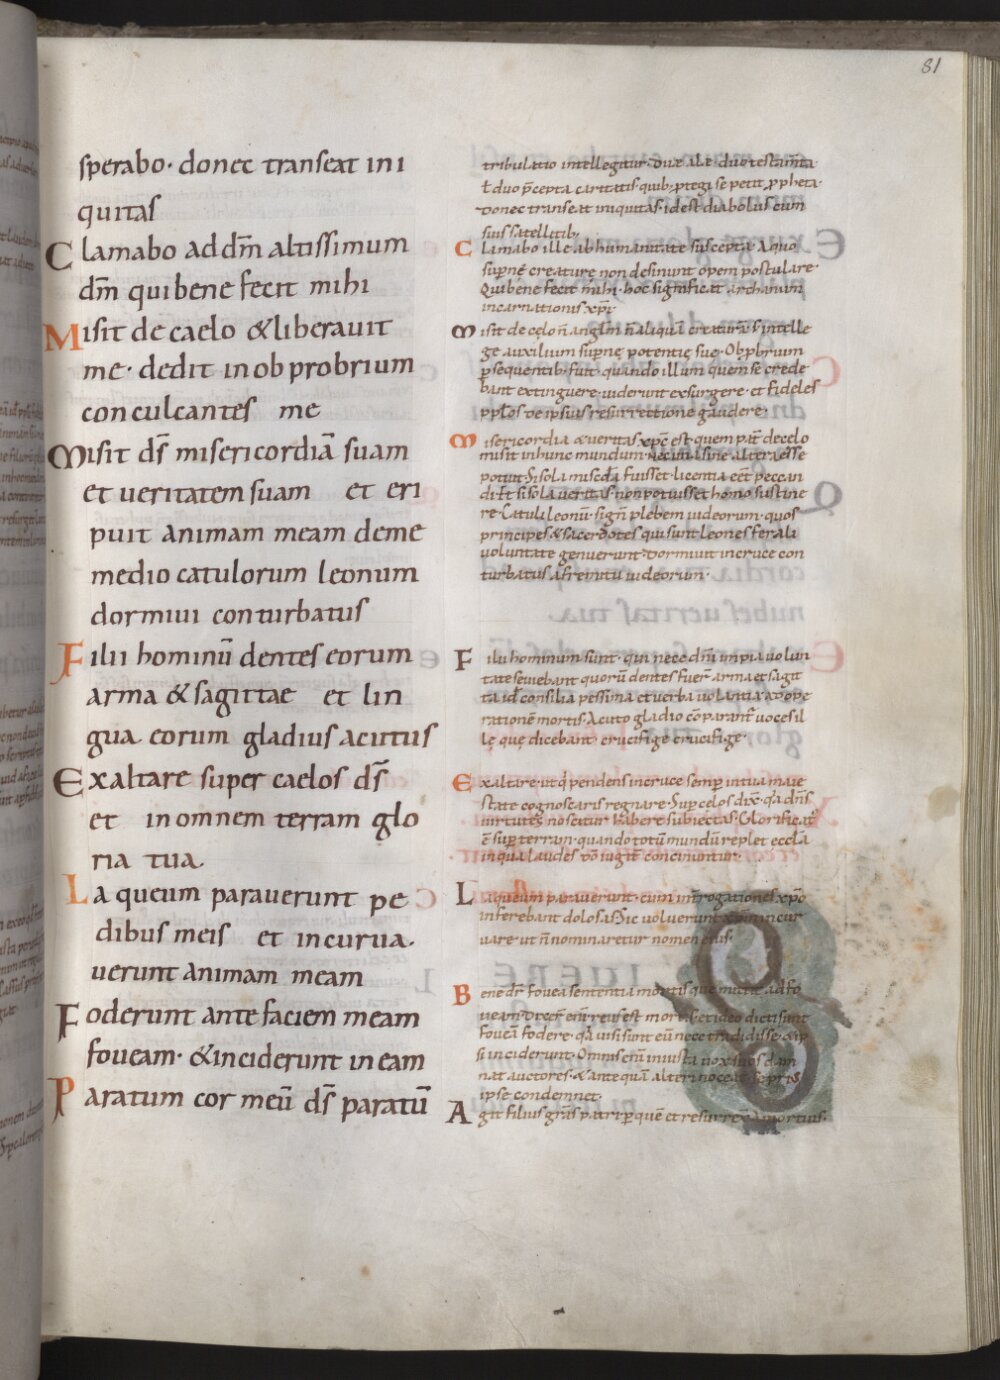 81
sperabo· donec transeat ini
quitas
Clamabo ad dm̄ altissimum
dm̄ qui bene fecit mihi
Misit de caelo &liberauit
me· dedit in obprobrium
conculcantes me
Misit ds̄ misericordiā suam
et ueritatem suam et eri
puit animam meam deme
medio catulorum leonum
dormiui conturbatus
Filii hominū dentes eorum
arma & sagittae et lin
gua eorum gladius acutus
Exaltare super caelos ds̄
et in omnem terram glo
ria tua·
Laqueum parauerunt pe
dibus meis et incurua·
uerunt animam meam
Foderunt ante faciem meam
foueam· &inciderunt in eam
Paratum cor meū ds̄ paratū
tribulatio intellegitur· duæ alæ· duo testam̄ta
ł duo p̄cepta caritatis quib; ptegi se petit ppheta·
donec transeat iniquitas· id est diabolus cum
suis satellitib;
Clamabo ille ab humanitate suscepta A quo
supne creature non desinunt opem postulare·
Qui bene fecit mihi· hoc significat archanum
incarnationis xpi·
Misit de celo n̄ anglm n̄ aliquā creaturā s; intelle
ge auxilium supne potentie sue· Obpbrium
psequentib; fuit· quando illum quem se crede
bant extinguere· uiderunt exsurgere· et fideles
pplos de ipsius resurrectione gaudere·
Misericordia & ueritas xpc est· quem pat̄ de celo
misit in hunc mundum· sine altera esse
potuit· Si sola miscda fuisset· licentia eēt peccan
di· Et si sola ueritas· non potuisset homo sustine
re· Catuli leonū· sign̄ plebem iudeorum· quos
principes & sacerdotes qui sunt leones ferali
uoluntate genuerunt· Dormiuit in cruce con
turbatus a fremitu iudeorum·
Filii hominum sunt· qui nece dn̄i impia uolun
tate seuiebant quorū dentes fuer̄ arma et sagit
ta id; consilia pessima et uerba uolantia ad ope
rationē mortis· Acuto gladio cōparant̄ uoces il
le que dicebant· crucifige crucifige·
Exaltare· ut q pendens in cruce semp in tua maie
state cognoscaris regnare· Sup celos dix̄· qa dn̄s
uirtutes noscitur habere subiectas· Glorificat̄
ē sup terram· quando totū mundū replet ecclā
in qua laudes dō iugit̄ concinuntur·
Laqueum parauerunt· cum int̄rogationes xpo
inferebant dolosas· Sic uoluerunt incur
uare· ut n̄ nominaretur nomen eius·
Bene dr̄ fouea sententia mortis que mittit ad fo
ueam· mors· et ideo dicti sunt
foueā fodere· qa uisi sunt eū nece tradidisse· & ip
si inciderunt· Omnis eni iniusta uox suos dam
nat auctores· & ante quā alteri noceat se pri
ipse condemnet·
Agit filius grās patri p quē et resurrex̄ a mortuis·